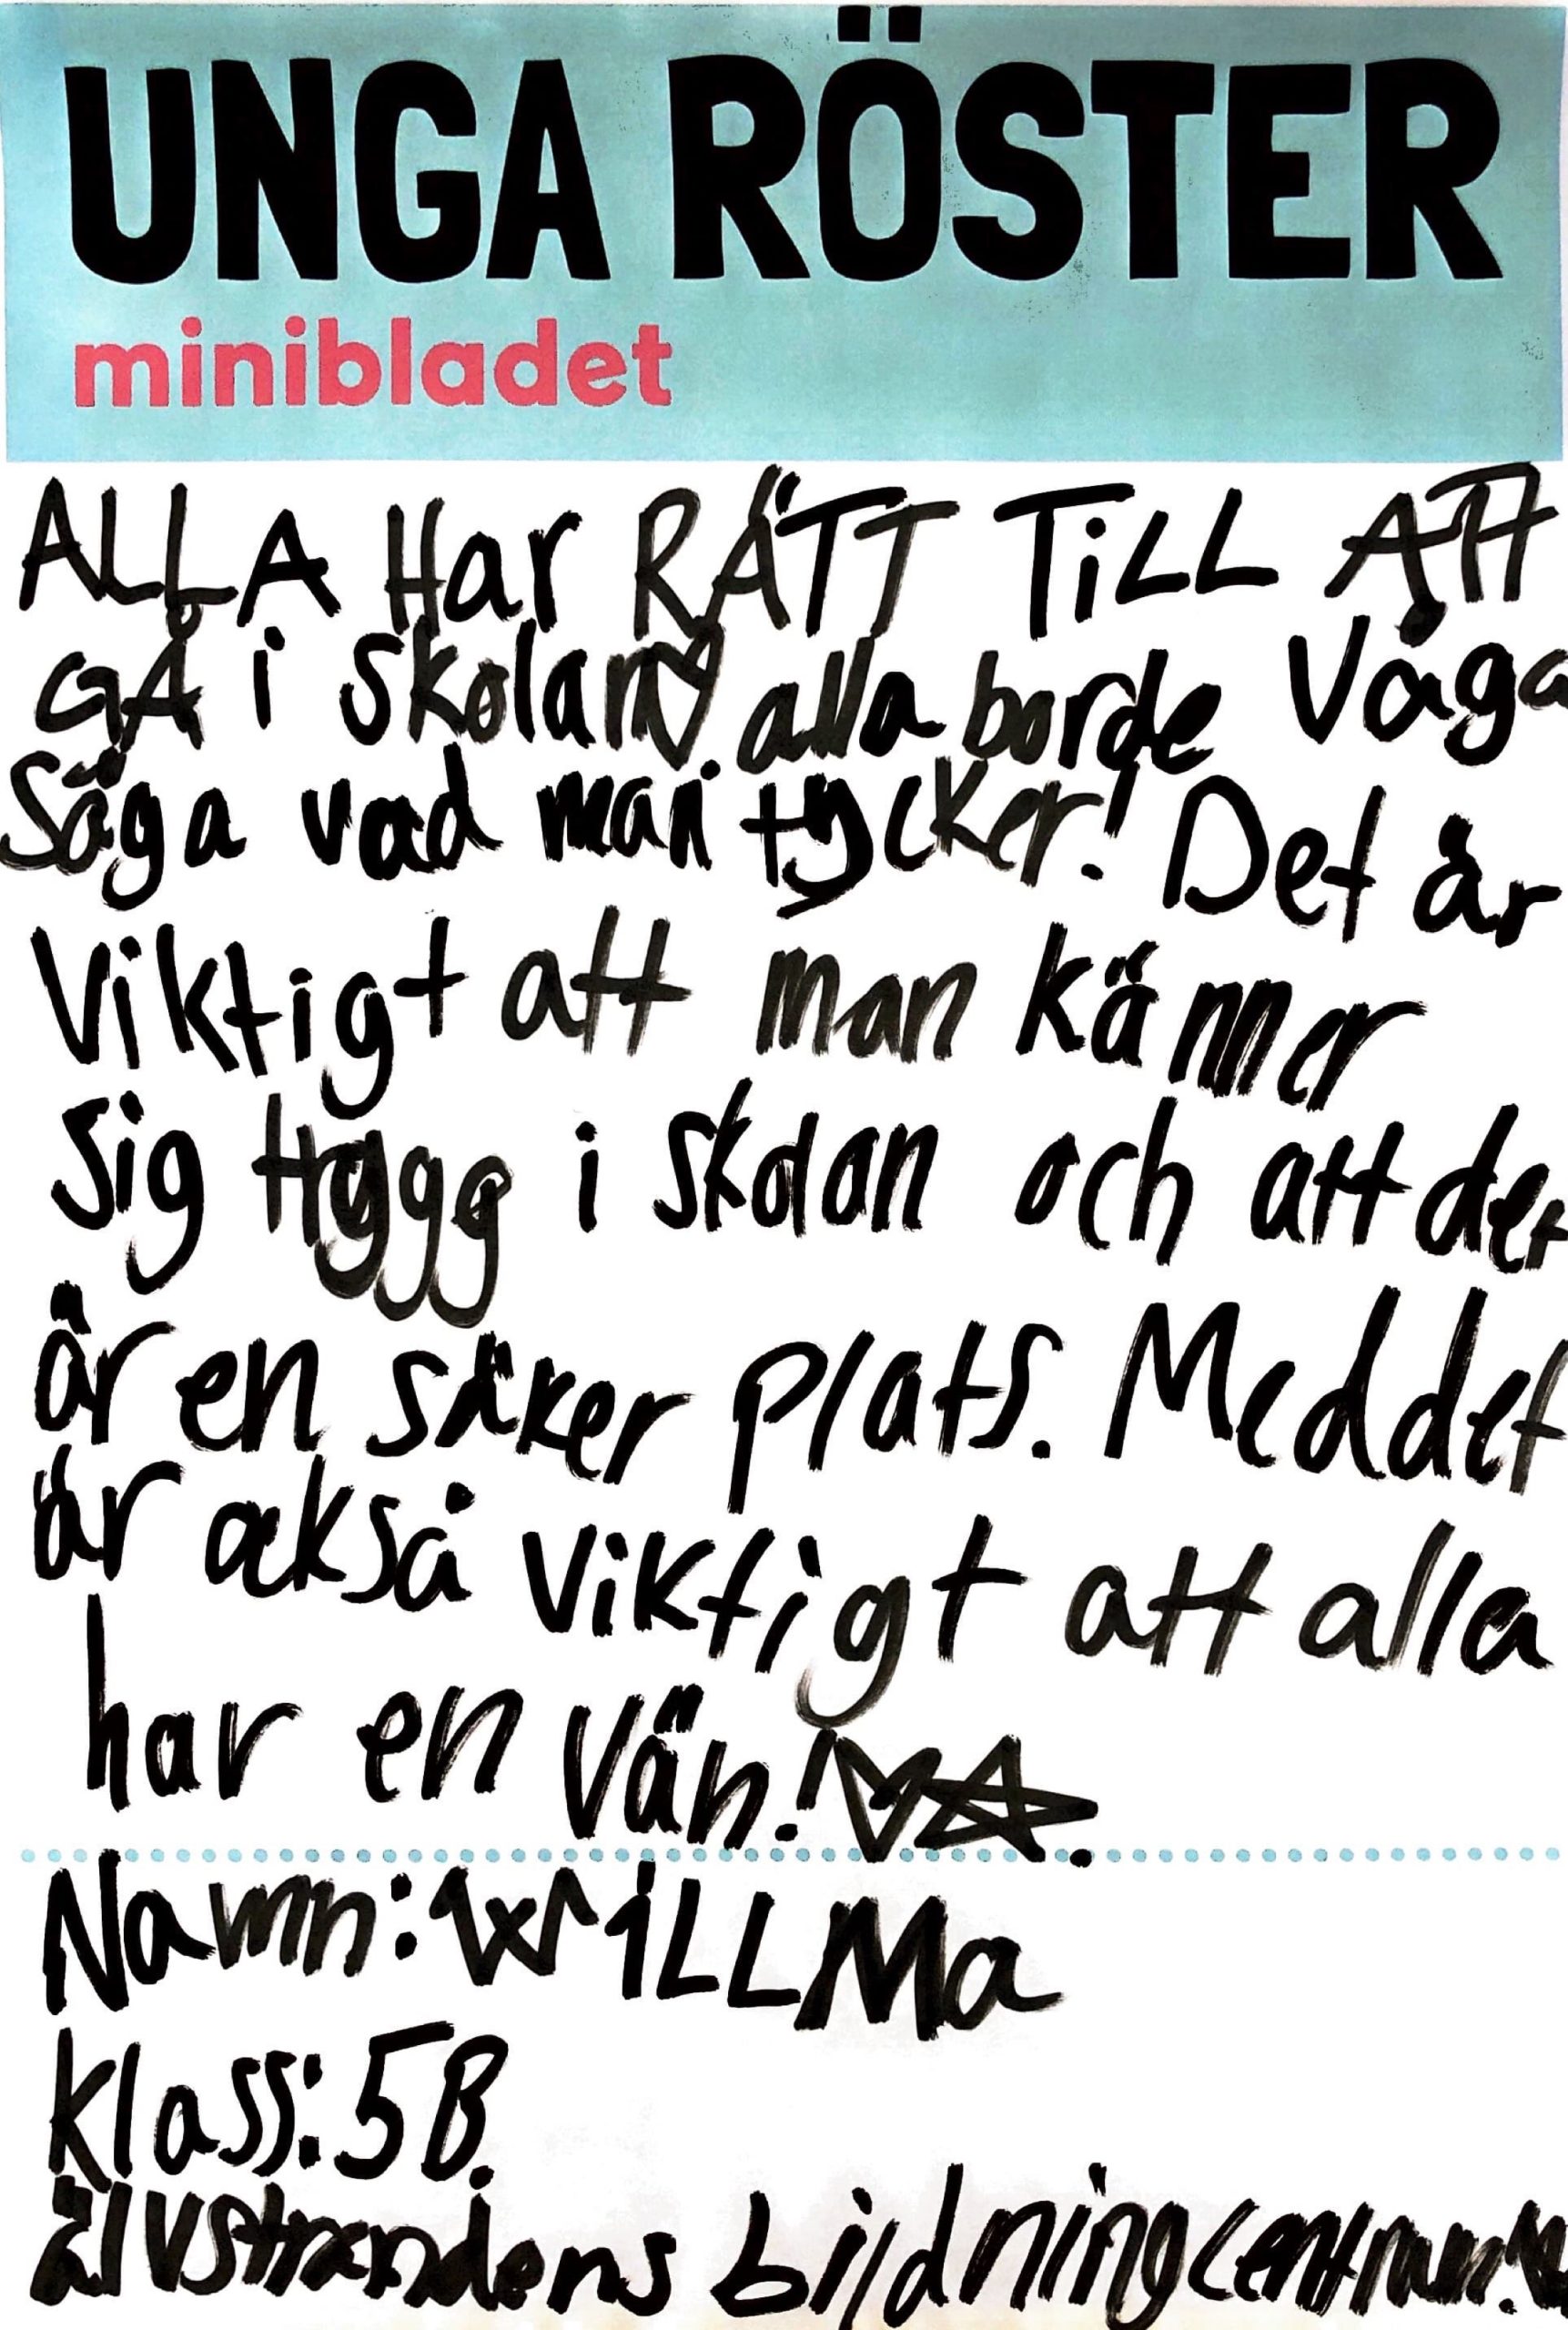 UNGA RÖSTER
minibladet
ALLA Har RÄTT TiLL ATT
GÅ i skolan♡ alla borde våga
Säga vad man tycker! Det är
Viktigt att man känner
sig trygg i skolan och att det
är en säker plats. Med det
är också viktigt att alla
har en vän!♡☆.
Namn: WiLLMa
Klass: 5B.
älvstrandens bildningcentrum!